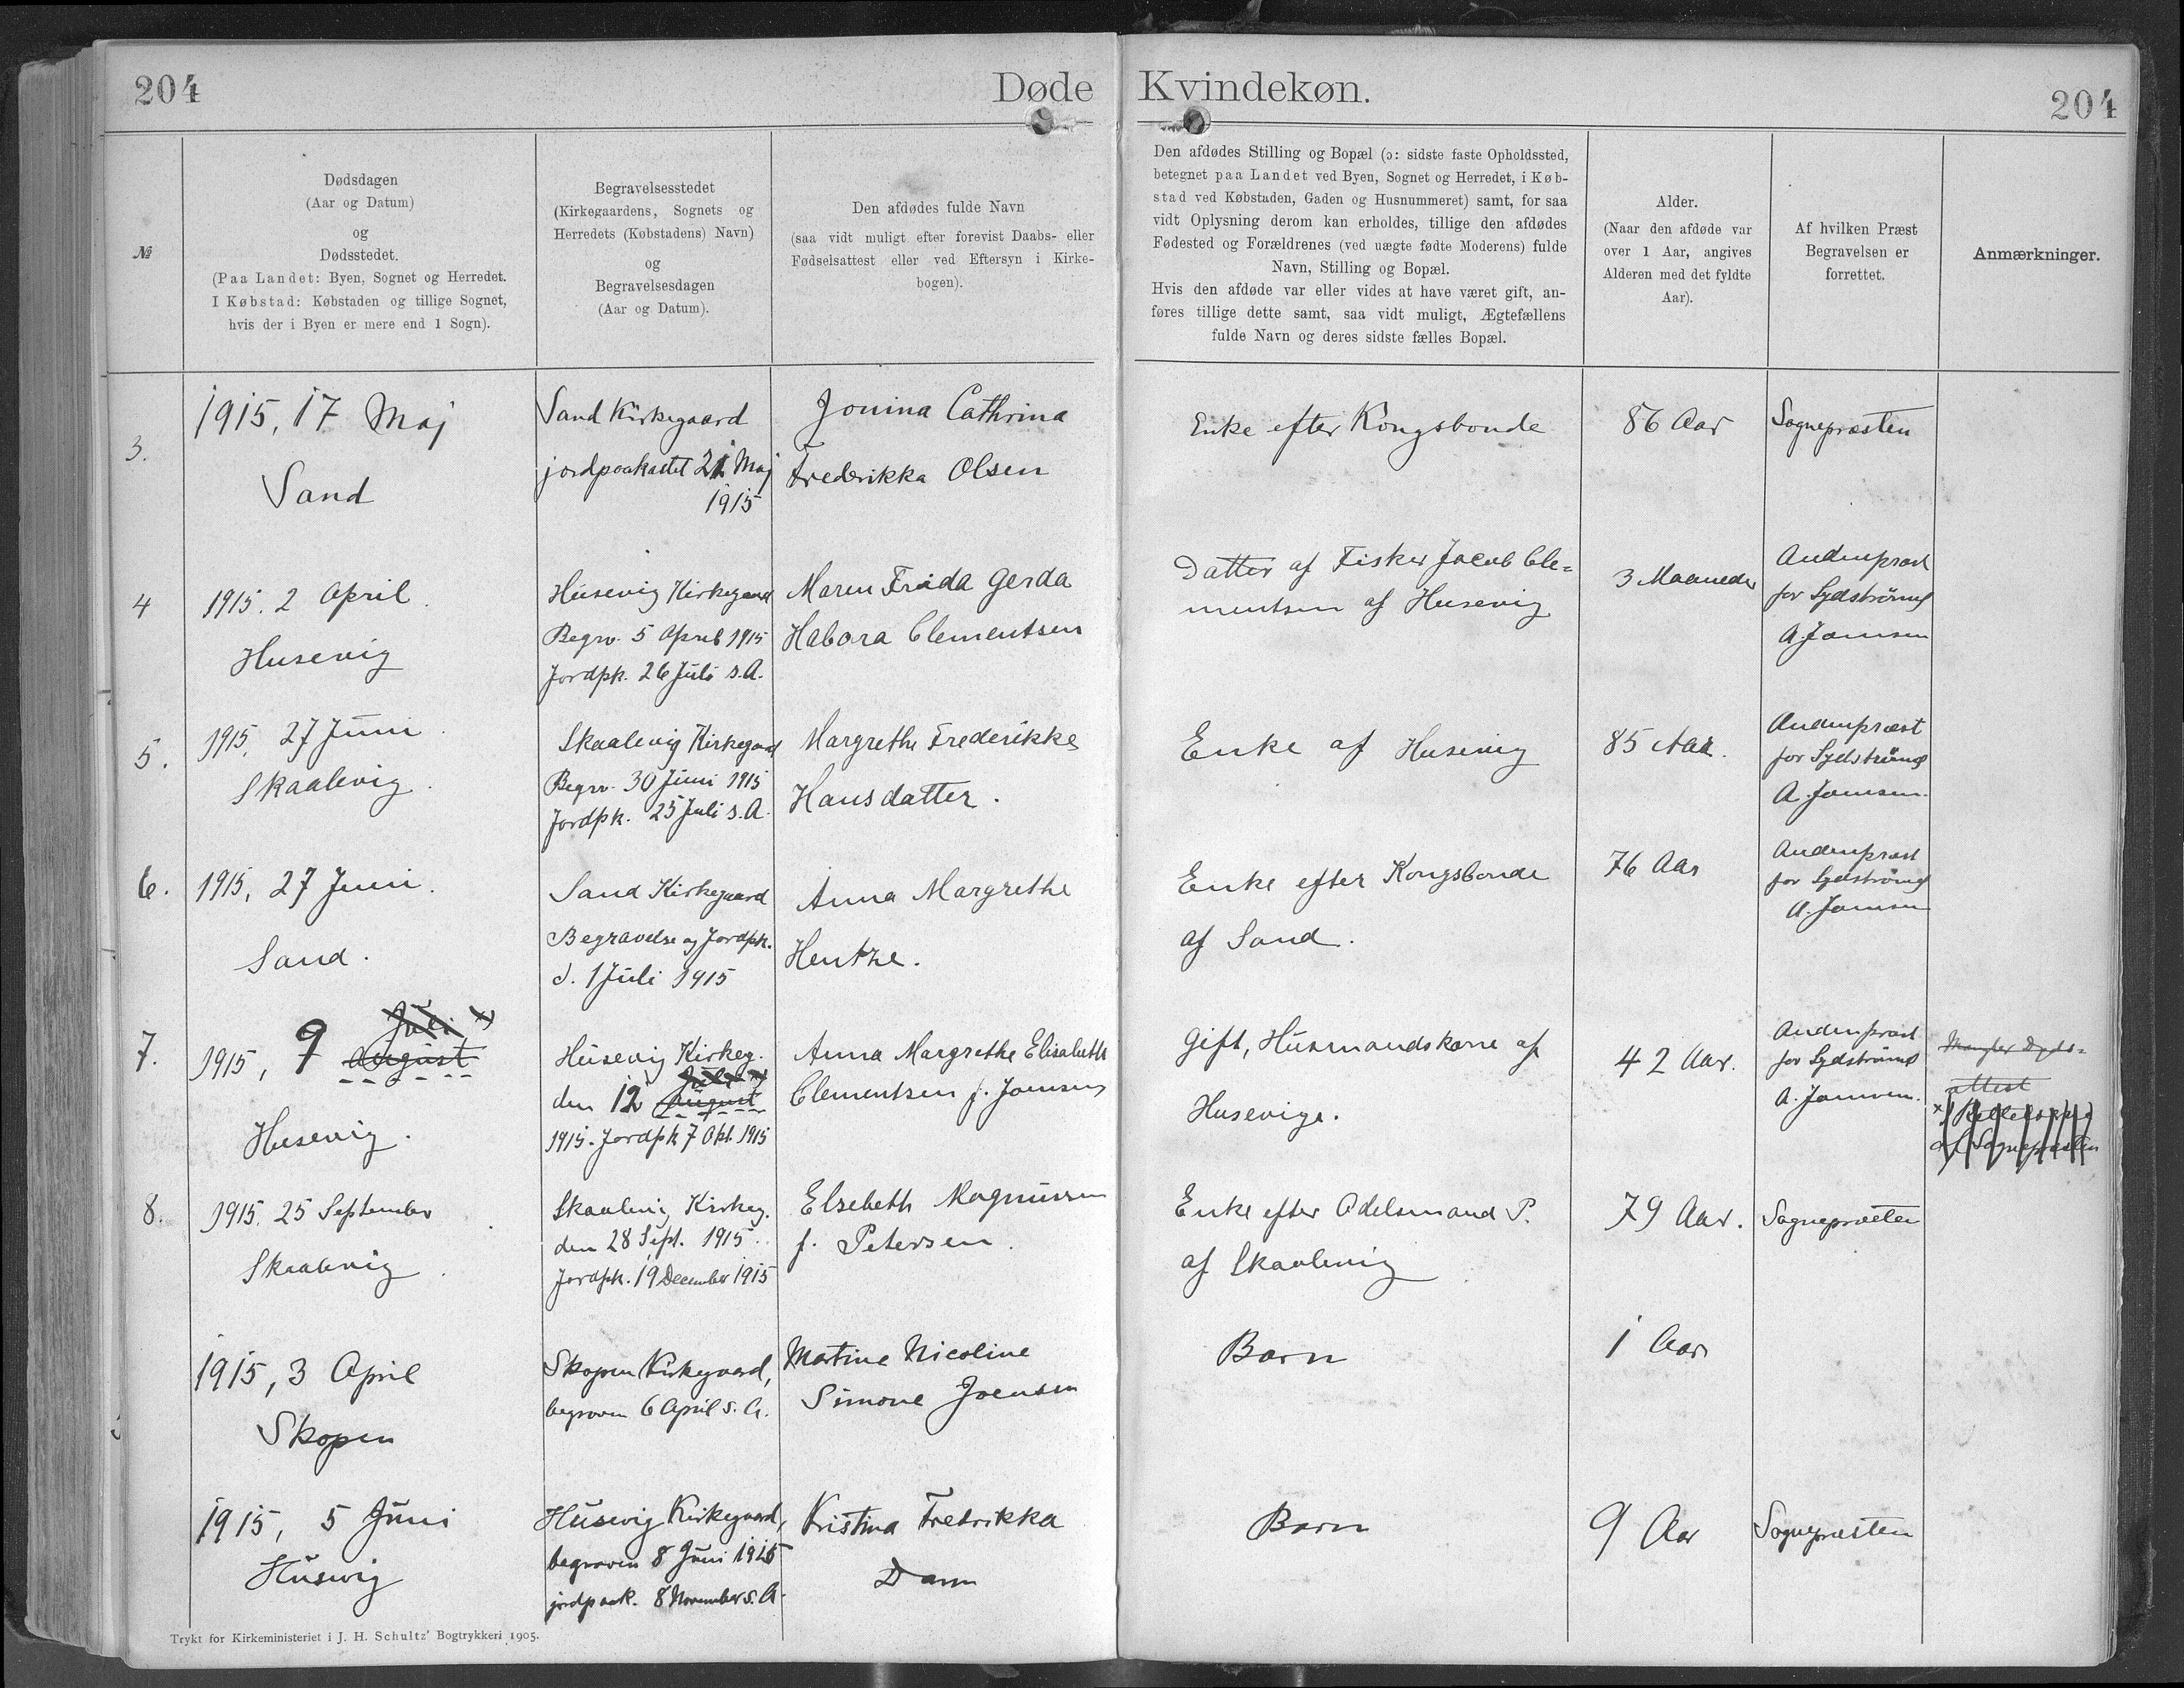 204
Døde
Kvindekøn.
204
№
Dødsdagen
(Aar og Datum)
og
Dødsstedet.
(Paa Landet: Byen, Sognet og Herredet.
I Købstad: Købstaden og tillige Sognet,
hvis der i Byen er mere end 1 Sogn).
Begravelsesstedet
(Kirkegaardens, Sognets og
Herredets (Købstadens) Navn)
og
Begravelsesdagen
(Aar og Datum).
Den afdødes fulde Navn
(saa vidt muligt efter forevist Daabs- eller
Fødselsattest eller ved Eftersyn i Kirke-
bogen).
Den afdødes Stilling og Bopæl (ɔ: sidste faste Opholdssted,
betegnet paa Landet ved Byen, Sognet og Herredet, i Køb-
stad ved Købstaden, Gaden og Husnummeret) samt, for saa
vidt Oplysning derom kan erholdes, tillige den afdødes
Fødested og Forældrenes (ved uægte fødte Moderens) fulde
Navn, Stilling og Bopæl.
Hvis den afdøde var eller vides at have været gift, an-
føres tillige dette samt, saa vidt muligt, Ægtefællens
fulde Navn og deres sidste fælles Bopæl.
Alder.
(Naar den afdøde var
over 1 Aar, angives
Alderen med det fyldte
Aar).
Af hvilken Præst
Begravelsen er
forrettet.
Anmærkninger.
3.
1915, 17 Maj
Sand
Sand Kirkegaard
jordpaakastet 21 Maj
1915
Jonina Cathrina
Frederikka Olsen
Enke efter Kongsbonde
86 Aar
Sognepræsten
4
1915. 2 April.
Husevig
Husevig Kirkegaard
Begrv. 5 April 1915
Jordpk. 26 Juli s.A.
Maren Frida Gerda
Habora Clementsen
Datter af Fisker Jacob Cle=
mentsen af Husevig
3 Maaneder
Andenpræst
for Sydstrømø
A. Joensen
5.
1915, 27 Juni.
Skaalevig.
Skaalevig Kirkegaard
Begrv. 30 Juni 1915
Jordpk. 25 Juli s.A.
Margrethe Frederikke
Hansdatter.
Enke af Husevig
85 Aar.
Andenpræst
for Sydstrømø
A. Joensen.
6.
1915, 27 Juni.
Sand.
Sand Kirkegaard
Begravelse og Jordpk.
d. 1 Juli 1915
Anna Margrethe
Hentze.
Enke efter Kongsbonde
af Sand.
76 Aar
Andenpræst
for Sydstrømø
A. Joensen
7.
Juli x)
1915, 9 August
Husevig.
Husevig Kirkeg.
Juli x)
den 12 August
1915. Jordpk 7 Okt. 1915
Anna Margrethe Elisabeth
Clementsen f. Joensen
Gift, Husmandskone af
Husevig.
42 Aar.
Andenpræst
for Sydstrømø
A. Joensen.
Mangler Døds=
attest
x)
af Sognepræsten
8.
1915. 25 September.
Skaalevig.
Skaalevig Kirkeg.
den 28 Sept. 1915.
Jordpk. 19 December 1915
Elsebeth Magnussen
f. Petersen.
Enke efter Odelsmand P.
af Skaalevig
79 Aar.
Sognepræsten
1915, 3 April
Skopen
Skopen Kirkegaard,
begraven 6 April s. A.
Martine Nicoline
Simone Joensen
Barn
1 Aar
1915, 5 Juni
Husevig
Husevig Kirkegaard,
begraven 8 Juni 1915
jordpaak. 8 November s. A.
Kristina Fredrikka
Dam
Barn
9 Aar
Sognepræsten
Trykt for Kirkeministeriet i J. H. Schultz' Bogtrykkeri 1905.